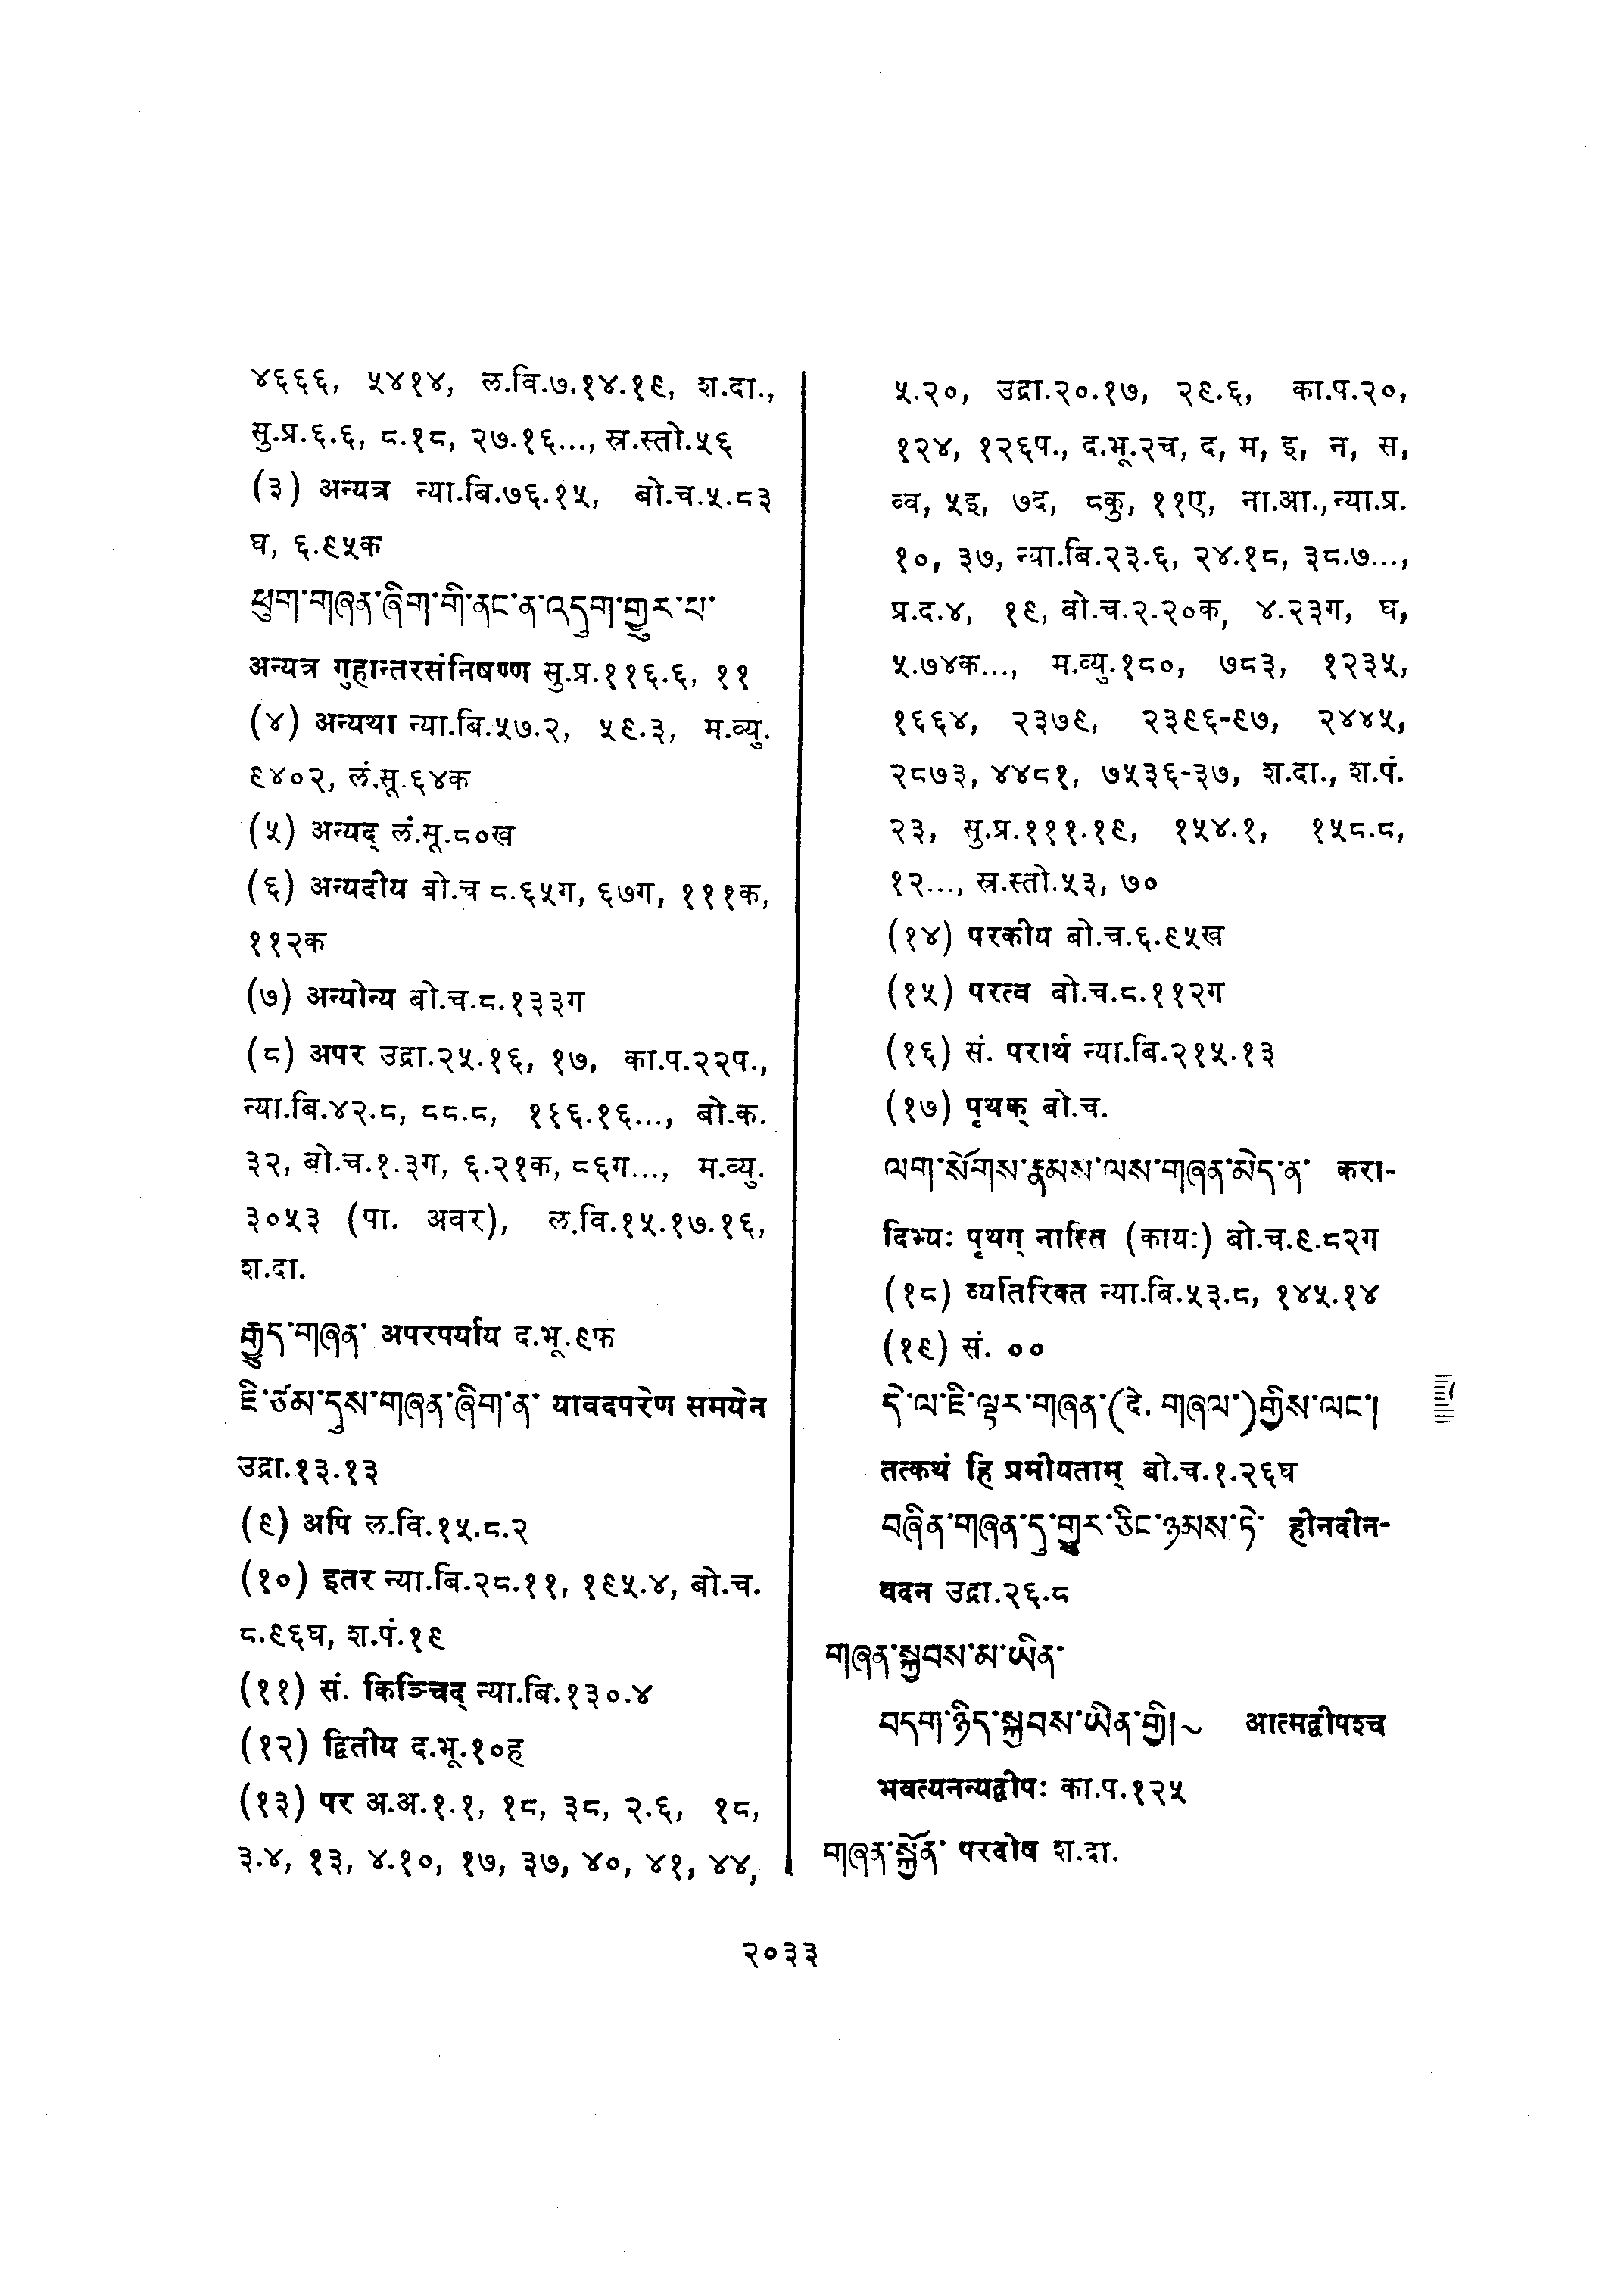 ४६६६, ५४१४, ल.वि.७.१४.१९, श.दा.,
सु.प्र.६.६, ८.१८, २७.१६..., स्र.स्तो.५६
(३) अन्यत्र न्या.बि.७६.१५, बो.च.५.८३
घ, ६.९५क
ཕུག་གཞན་ཞིག་གི་ནང་ན་འདུག་གྱུར་པ་
अन्यत्र गुहान्तरसंनिषण्ण सु.प्र.११६.६, ११
(४) अन्यथा न्या.बि.५७.२, ५९.३, म.व्यु.
९४०२, लं.सू.६४क
(५) अन्यद् लं.सू.८०ख
(६) अन्यदीय बो.च ८.६५ग, ६७ग, १११क,
११२क
(७) अन्योन्य बो.च.८.१३३ग
(८) अपर उद्रा.२५.१६, १७, का.प.२२प.,
न्या.बि.४२.८, ८८.८, ११६.१६..., बो.क.
३२, बो.च.१.३ग, ६.२१क, ८६ग..., म.व्यु.
३०५३ (पा. अवर), ल.वि.१५.१७.१६,
श.दा.
རྒྱུད་གཞན་ अपरपर्याय द.भू.९फ
ཇི་ཙམ་དུས་གཞན་ཞིག་ན་ यावदपरेण समयेन
उद्रा.१३.१३
(९) अपि ल.वि.१५.८.२
(१०) इतर न्या.बि.२८.११, १९५.४, बो.च.
८.९६घ, श.पं.१९
(११) सं. किञ्चिद् न्या.बि.१३०.४
(१२) द्वितीय द.भू.१०ह
(१३) पर अ.अ.१.१, १८, ३८, २.६, १८,
३.४, १३, ४.१०, १७, ३७, ४०, ४१, ४४,
५.२०, उद्रा.२०.१७, २९.६, का.प.२०,
१२४, १२६प., द.भू.२च, द, म, इ, न, स,
व्व, ५इ, ७द, ८कु, ११ए, ना.आ., न्या.प्र.
१०, ३७, न्या.बि.२३.६, २४.१८, ३८.७...,
प्र.द.४, १९, बो.च.२.२०क, ४.२३ग, घ,
५.७४क..., म.व्यु.१८०, ७८३, १२३५,
१६६४, २३७९, २३९६-९७, २४४५,
२८७३, ४४८१, ७५३६-३७, श.दा., श.पं.
२३, सु.प्र.१११.१९, १५४.१, १५८.८,
१२..., स्र.स्तो.५३, ७०
(१४) परकीय बो.च.६.९५ख
(१५) परत्व बो.च.८.११२ग
(१६) सं. परार्थ न्या.बि.२१५.१३
(१७) पृथक् बो.च.
ལག་སོགས་རྣམས་ལས་གཞན་མེད་ན་ करा-
दिभ्यः पृथग् नास्ति (कायः) बो.च.९.८२ग
(१८) व्यतिरिक्त न्या.बि.५३.८, १४५.१४
(१९) सं. ००
དེ་ལ་ཇི་ལྟར་གཞན་(दे. གཞལ་)གྱིས་ལང་།
तत्कथं हि प्रमीयताम् बो.च.१.२६घ
བཞིན་གཞན་དུ་གྱུར་ཅིང་ཉམས་ཏེ་ हीनदीन-
वदन उद्रा.२६.८
གཞན་སྐྱབས་མ་ཡིན་
བདག་ཉིད་སྐྱབས་ཡིན་གྱི།~ आत्मद्वीपश्च
भवत्यनन्यद्वीपः का.प.१२५
གཞན་སྐྱོན་ परदोष श.दा.
२०३३